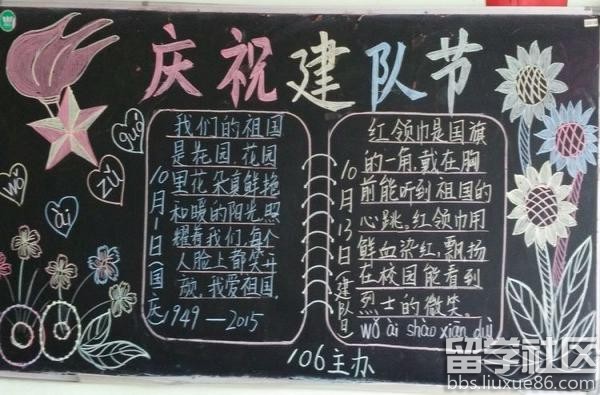 庆祝建队节
guó
wǒ
zǔ
ài
我们的祖国
是花园,花园
里花朵真鲜艳
和暖的阳光照
耀着我们,每个
人脸上都笑开
颜,我爱祖国.
1949—2015
10月1日国庆
红领巾是国旗
的一角,戴在胸
前能听到祖国的
心跳,红领巾用
鲜血染红,飘扬
在校园能看到
烈士的微笑.
wǒ ài shào xiān duì
10月13日(建队日
106主办
留学社区
bbs.liuxue86.com